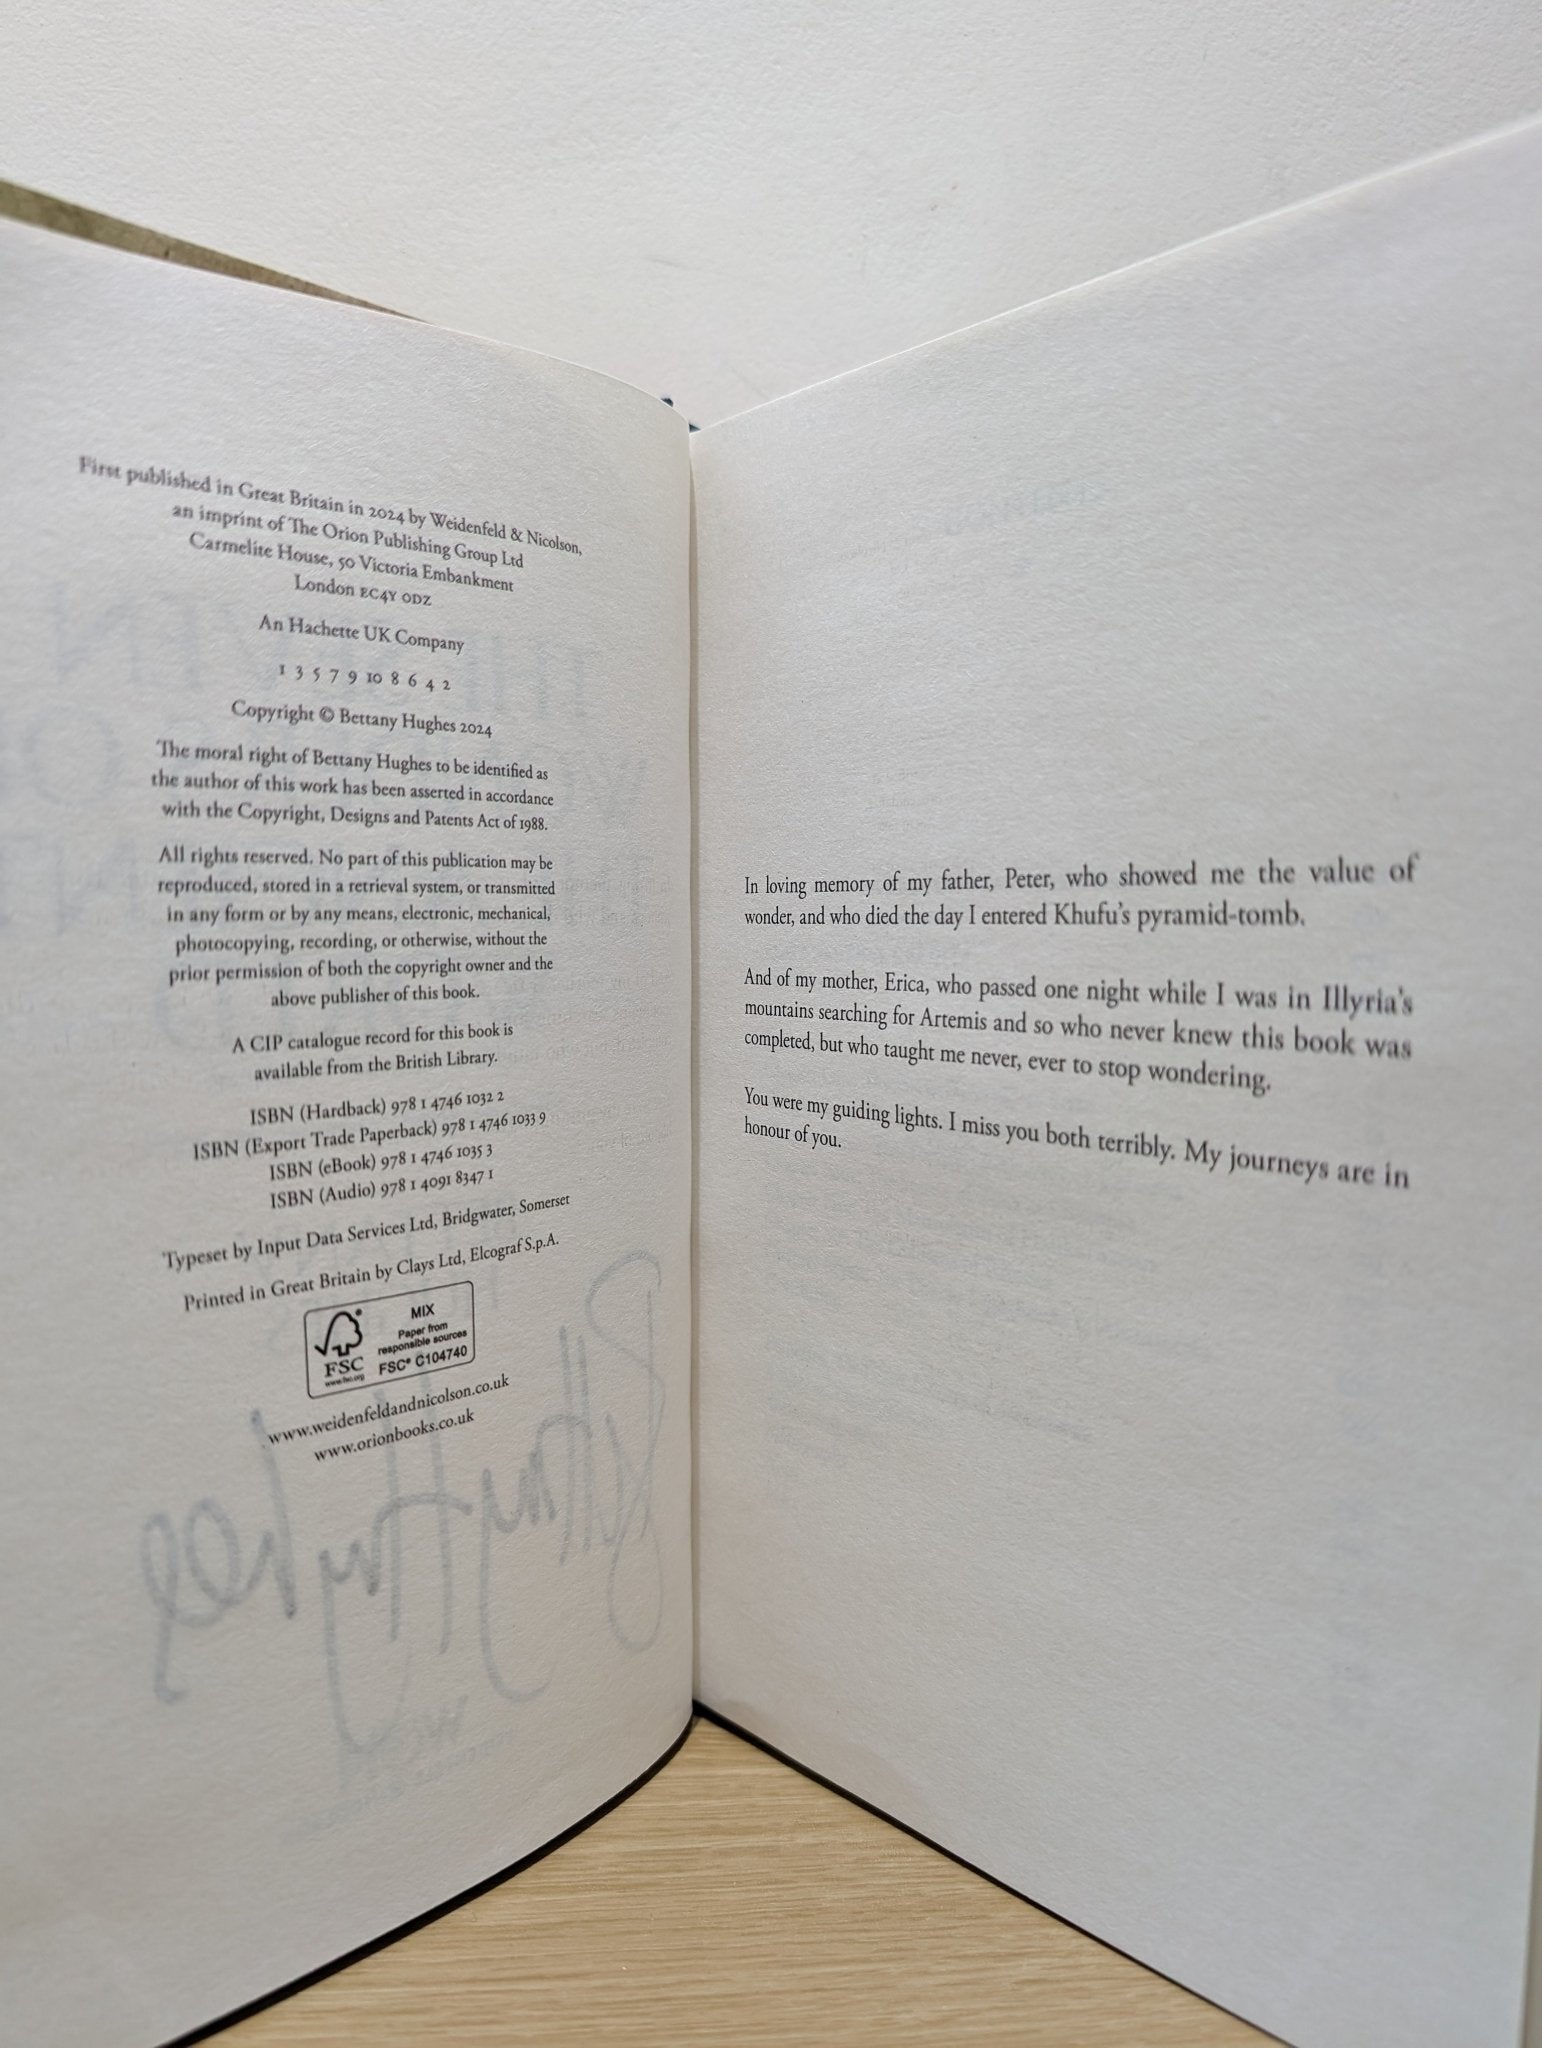 First published in Great Britain in 2024 by Weidenfeld & Nicolson,
an imprint of The Orion Publishing Group Ltd
Carmelite House, 50 Victoria Embankment
London EC4Y 0DZ
An Hachette UK Company
1 3 5 7 9 10 8 6 4 2
Copyright © Bettany Hughes 2024
The moral right of Bettany Hughes to be identified as
the author of this work has been asserted in accordance
with the Copyright, Designs and Patents Act of 1988.
All rights reserved. No part of this publication may be
reproduced, stored in a retrieval system, or transmitted
in any form or by any means, electronic, mechanical,
photocopying, recording, or otherwise, without the
prior permission of both the copyright owner and the
above publisher of this book.
A CIP catalogue record for this book is
available from the British Library.
ISBN (Hardback) 978 1 4746 1032 2
ISBN (Export Trade Paperback) 978 1 4746 1033 9
ISBN (eBook) 978 1 4746 1035 3
ISBN (Audio) 978 1 4091 8347 1
Typeset by Input Data Services Ltd, Bridgwater, Somerset
Printed in Great Britain by Clays Ltd, Elcograf S.p.A.
MIX
Paper from
responsible sources
FSC® C104740
FSC
www.fsc.org
www.weidenfeldandnicolson.co.uk
www.orionbooks.co.uk
In loving memory of my father, Peter, who showed me the value of
wonder, and who died the day I entered Khufu's pyramid-tomb.
And of my mother, Erica, who passed one night while I was in Illyria's
mountains searching for Artemis and so who never knew this book was
completed, but who taught me never, ever to stop wondering.
You were my guiding lights. I miss you both terribly. My journeys are in
honour of you.